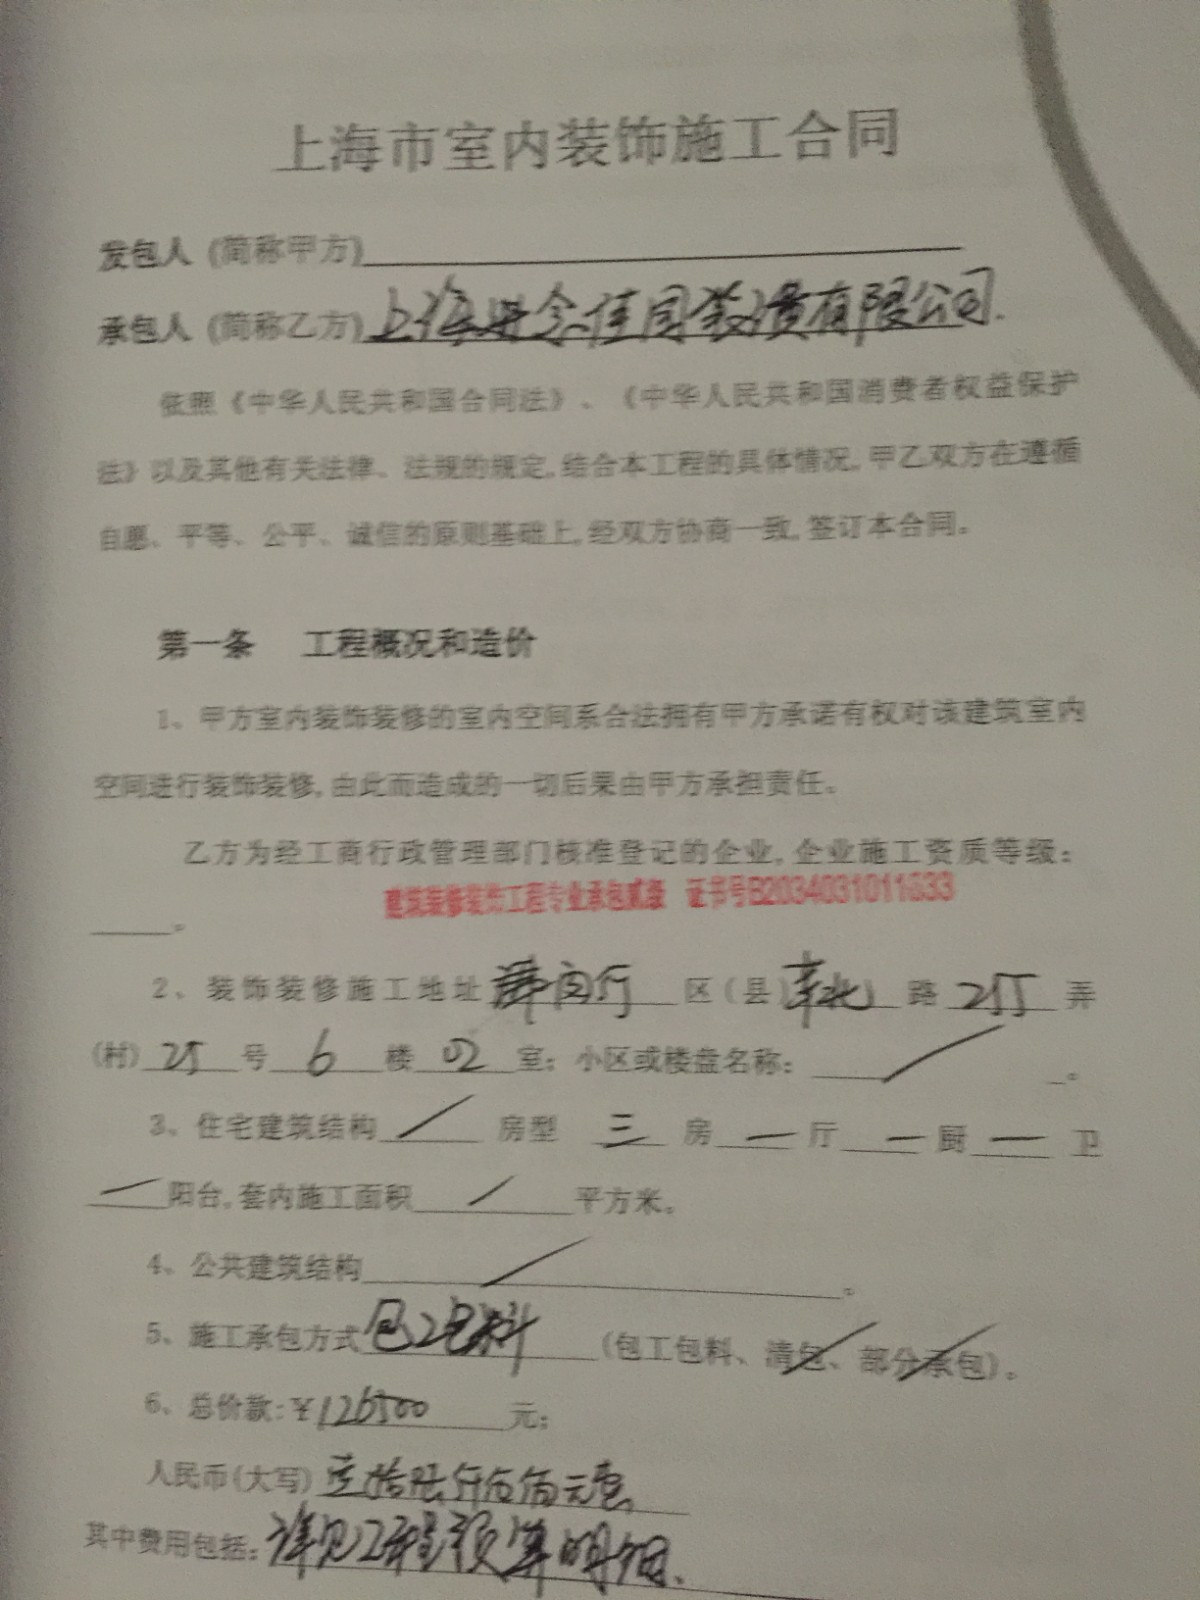 上海市室内装饰施工合同
发包人 (简称甲方)
承包人 (简称乙方) 上海 佳园装潢有限公司.
依照《中华人民共和国合同法》、《中华人民共和国消费者权益保护
法》以及其他有关法律、法规的规定,结合本工程的具体情况,甲乙双方在遵循
自愿、平等、公平、诚信的原则基础上,经双方协商一致,签订本合同。
第一条 工程概况和造价
1、甲方室内装饰装修的室内空间系合法拥有甲方承诺有权对该建筑室内
空间进行装饰装修,由此而造成的一切后果由甲方承担责任。
乙方为经工商行政管理部门核准登记的企业,企业施工资质等级:
建筑装修装饰工程专业承包贰级 证书号B2034031011633
。
2、装饰装修施工地址 闵行 区(县) 路 255 弄
(村) 25 号 6 楼 02 室; 小区或楼盘名称: / 。
3、住宅建筑结构 / 房型 三 房 一 厅 一 厨 一 卫
一 阳台,套内施工面积 / 平方米。
4、公共建筑结构 / 。
5、施工承包方式 包工包料 (包工包料、清包、部分承包)。
6、总价款:¥126500 元;
人民币(大写) 仟伍佰元
其中费用包括: 详见工程预算明细.